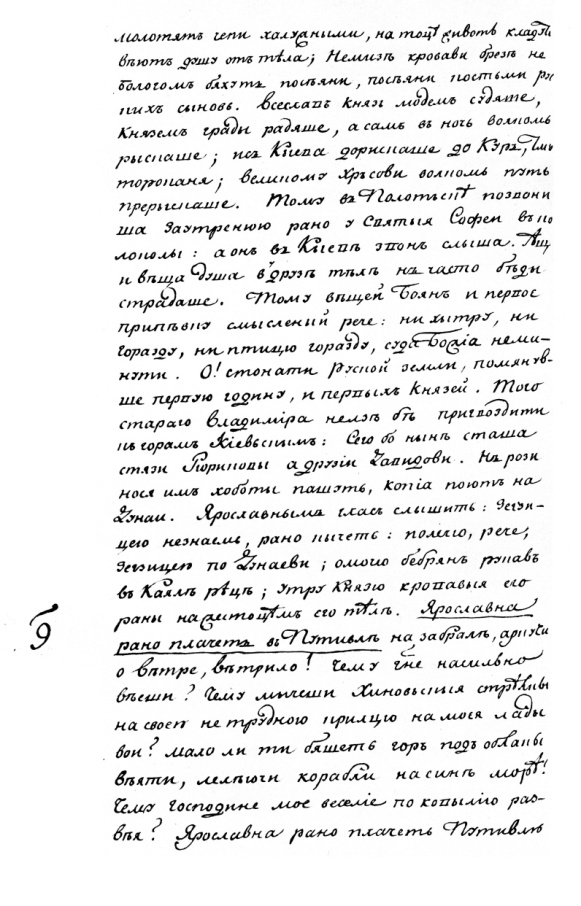 молотятъ чепи харалужными, на тоцѣ животъ кладутъ
вѣютъ душу отъ тѣла; Немизѣ кровави брезѣ не
бологомъ бяхуть посѣяни, посѣяни костьми ру
скихъ сыновъ. Всеславъ князь людемъ судяше,
Княземъ грады радяше, а самъ въ ночь волкомъ
рыскаше; изъ Кіева дорискаше до Куръ, Тму
тороканя; великому Хръсови волкомъ путь
прерыскаше. Тому въ Полотьскѣ позвони
ша заутренюю рано у Святыя Софеи въ ко
локолы: а онъ въ Кыевѣ звонъ слыша. Ащ
и вѣща душа в друзѣ тѣлѣ нъ часто бѣды
страдаше. Тому вѣщей Боянъ и первое
припѣвку смысленый рече: ни хытру, ни
горазду, ни птицю горазду, суда Божіа неми-
нути. О! стонати Руской земли, помянув-
ше первую годину, и первыхъ Князей. Того
стараго Владиміра нелзѣ бѣ пригвоздити
къ горамъ Кіевьскимъ: Сего бо нынѣ сташа
стязи Рюриковы а друзіи Давидови. Нъ рози
нося имъ хоботы пашуть, копіа поютъ на
Дунаи. Ярославнымъ гласъ слышитъ: зегзи-
цею незнаемь, рано кычеть: полечю, рече,
зегзицею по Дунаеви; омочю бебрянъ рукавъ
въ Каялѣ рѣцѣ; утру Князю кровавыя его
раны на жестоцѣмъ его тѣлѣ. Ярославна
рано плачетъ въ Путивлѣ на забралѣ, аркучи
о вѣтре, вѣтрило! Чему гне насильно
вѣеши? Чему мычеши Хиновьскыя стрѣлкы
на своею не трудною крилцю на моея лады
вои? Мало ли ти бяшеть горъ подъ облакы
вѣяти, лелѣючи корабли на синѣ морѣ!
Чему господине мое веселіе по ковылію раз-
вѣя? Ярославна рано плачеть Путивлѣ
9